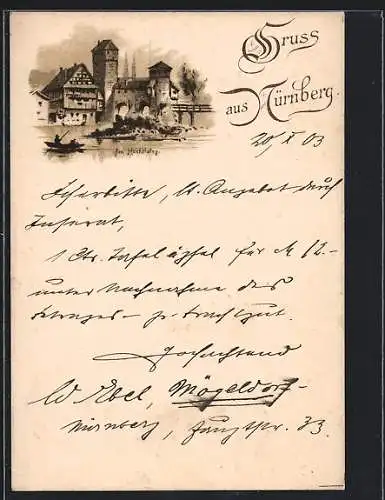 Gruss
aus Nürnberg.
Am Henkersteg.
20/X 03
Ich erbitte, lt. Angebot durch
Inserat,
1 Ctr. Tafeläpfel für M 12.-
unter Nachnahme des
Betrages – pr. Frachtgut.
Hochachtend
W Ebel, Mögeldorf-
Nürnberg, 33.